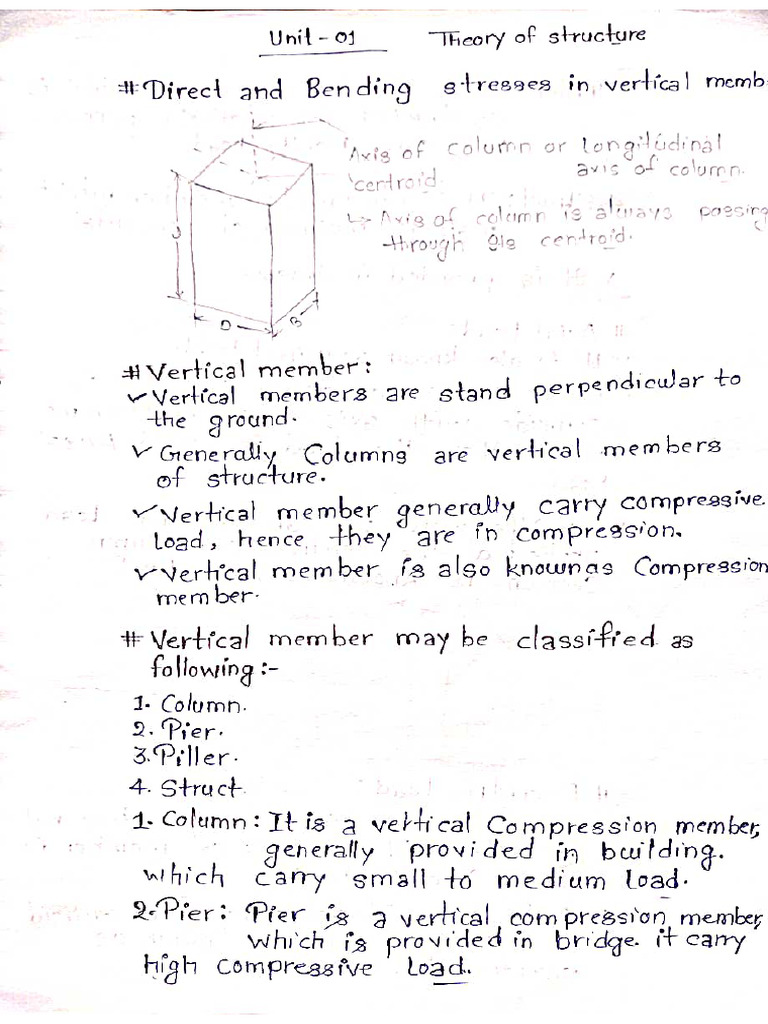 Unit - 01 Theory of structure
# Direct and Bending stresses in vertical memb
Axis of column or longitudinal
axis of column.
centroid
↳ Axis of column is always passing
through its centroid.
D
B
# Vertical member:
✓ Vertical members are stand perpendicular to
the ground.
✓ Generally Columns are vertical members
of structure.
✓ Vertical member generally carry compressive
load, hence they are in compression.
✓ Vertical member is also known as Compression
member.
# Vertical member may be classified as
following :-
1. Column.
2. Pier.
3. Piller.
4. Struct
1. Column: It is a vertical Compression member,
generally provided in building.
which carry small to medium load.
2. Pier: Pier is a vertical compression member,
which is provided in bridge. it carry
high compressive Load.